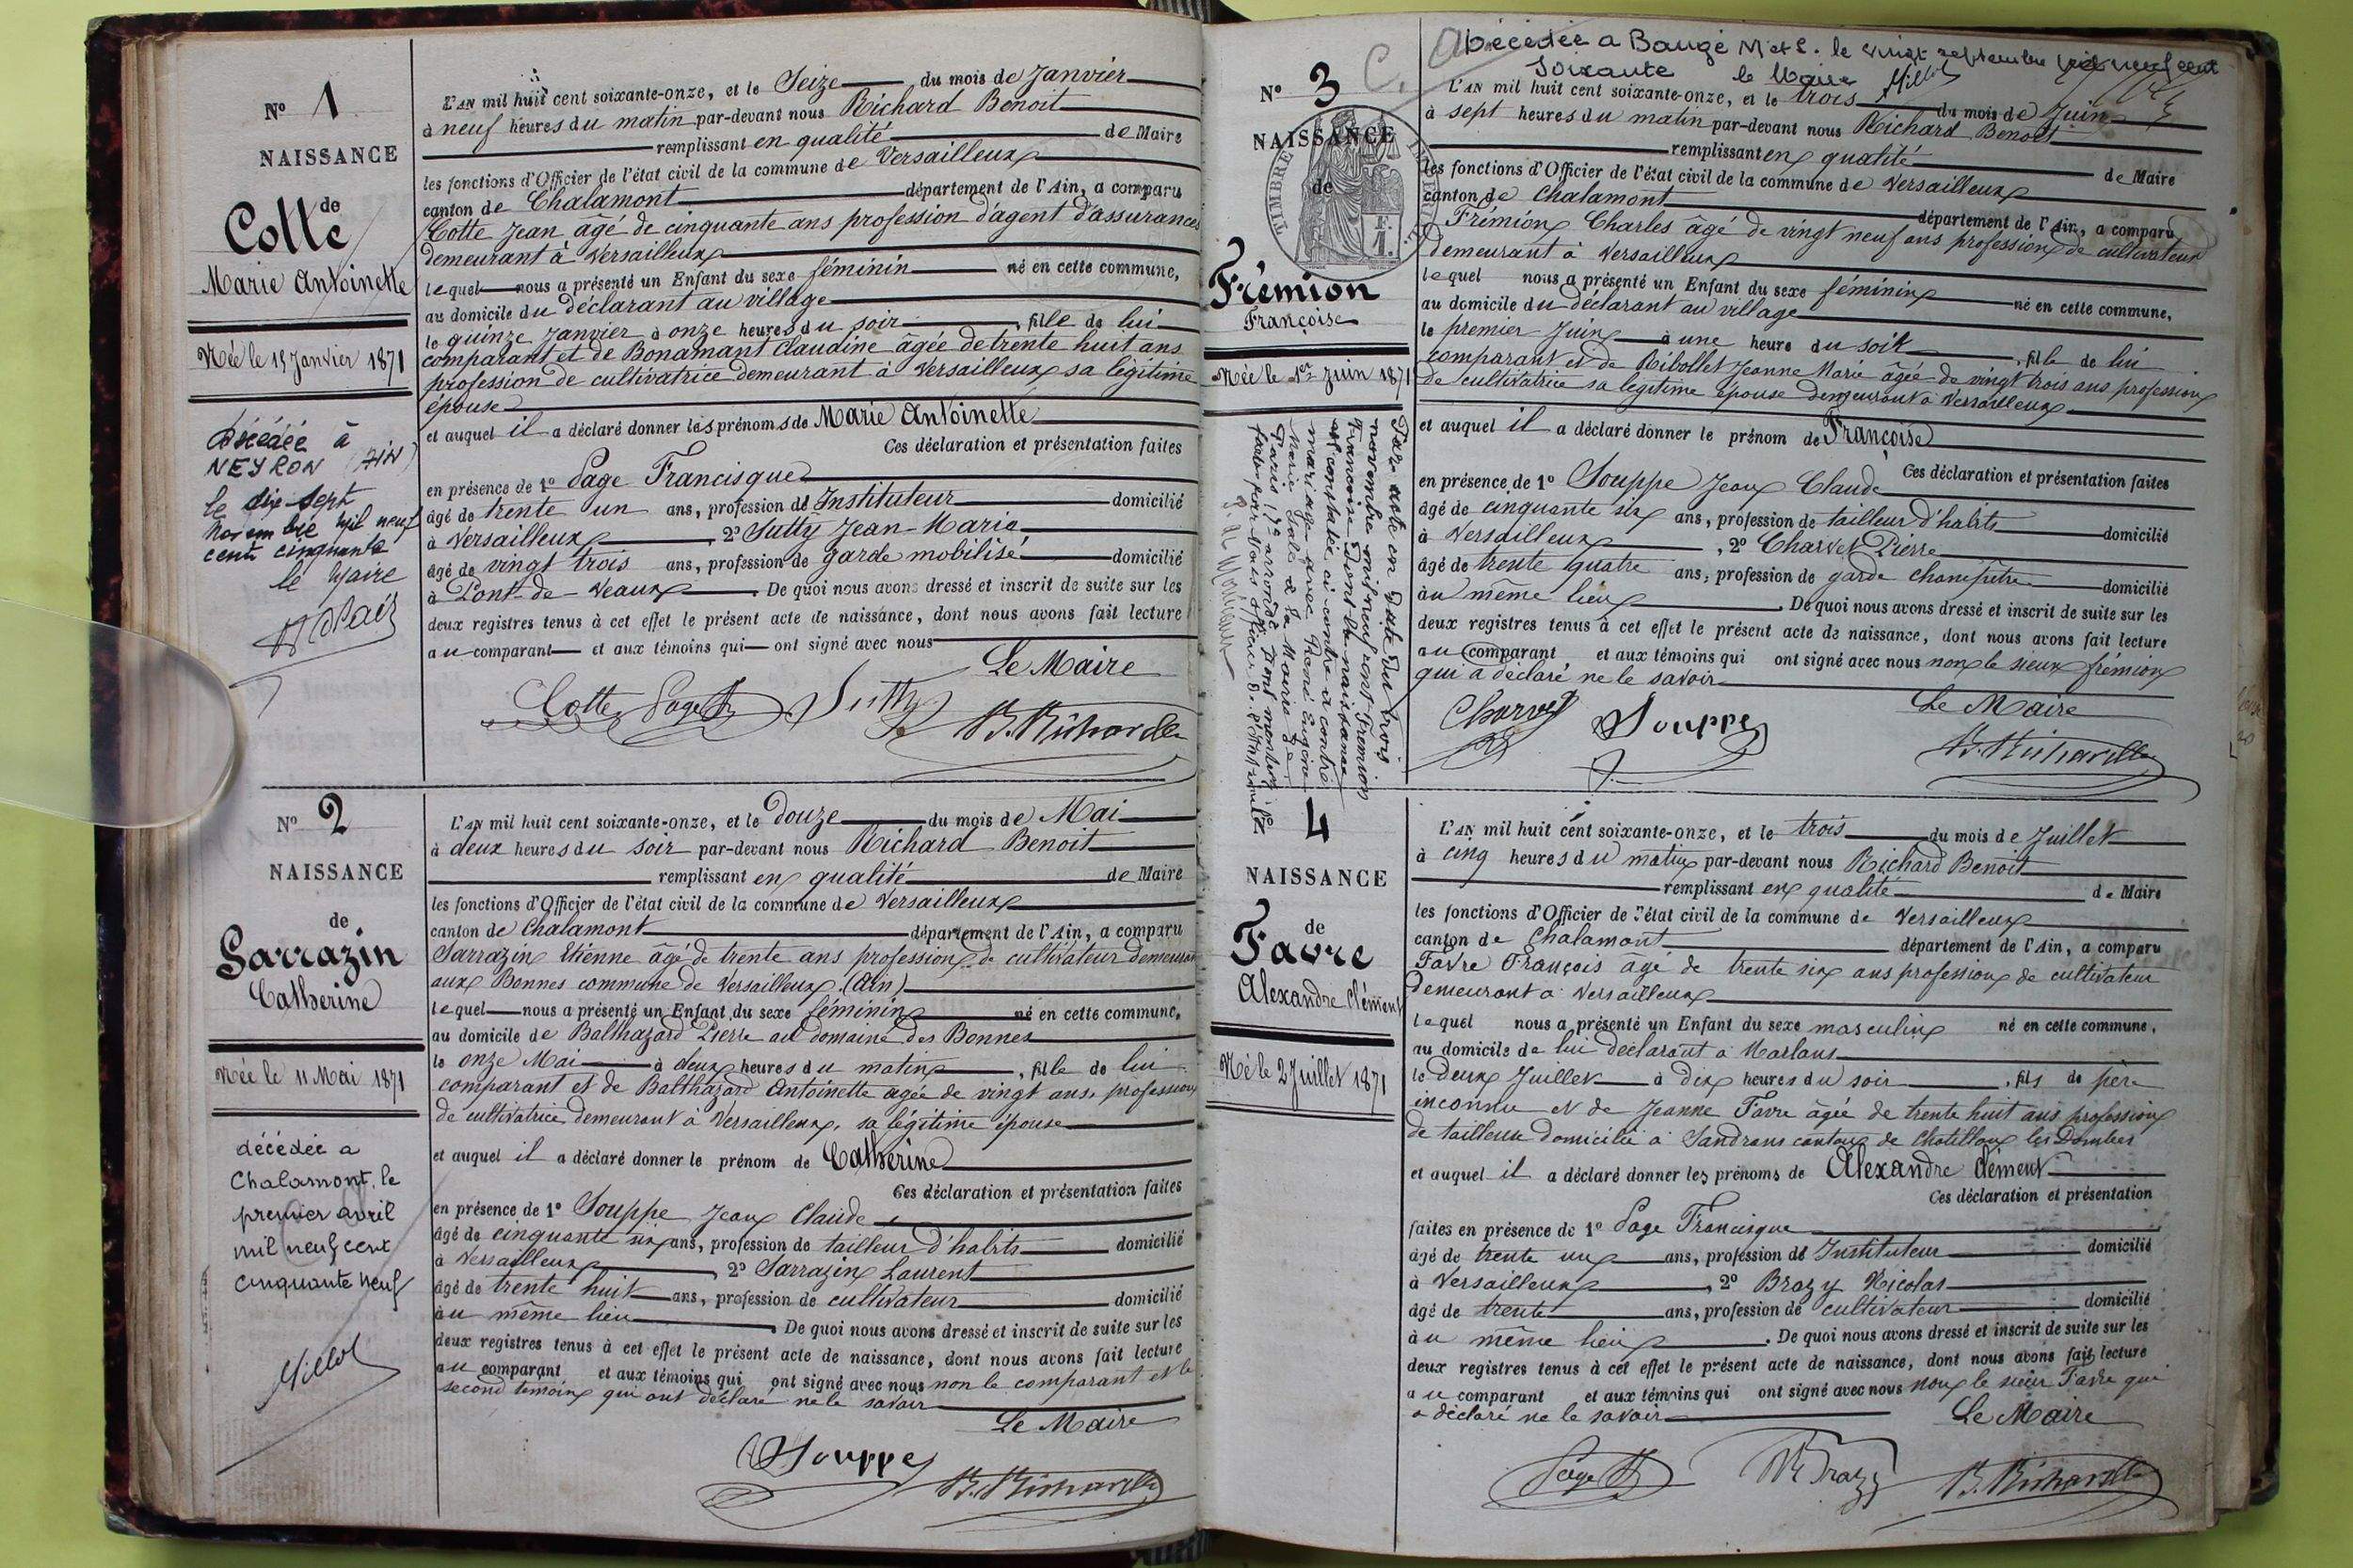 N° 1
NAISSANCE
de
Cotte
Marie Antoinette
Née le 15 Janvier 1871
Décédée à
NEYRON (AIN)
le dix-sept
novembre mil neuf
cent cinquante
le Maire
L'AN mil huit cent soixante-onze, et le Seize du mois de Janvier
à neuf heures du matin par-devant nous Richard Benoit
remplissant en qualité de Maire
les fonctions d'Officier de l'état civil de la commune de Versailleux
canton de Chalamont département de l'Ain, a comparu
Cotte Jean âgé de cinquante ans profession d'agent d'assurances
demeurant à Versailleux
lequel nous a présenté un Enfant du sexe féminin né en cette commune,
au domicile du déclarant au village
le quinze Janvier à onze heures du soir, fille de lui
comparant et de Bonamant Claudine âgée de trente huit ans
profession de cultivatrice demeurant à Versailleux sa légitime
épouse
et auquel il a déclaré donner les prénoms de Marie Antoinette
Ces déclaration et présentation faites
en présence de 1° Page Francisque
âgé de trente un ans, profession de Instituteur domicilié
à Versailleux, 2° Sutty Jean-Marie
âgé de vingt trois ans, profession de garde mobilisé domicilié
à Pont-de-Veaux. De quoi nous avons dressé et inscrit de suite sur les
deux registres tenus à cet effet le présent acte de naissance, dont nous avons fait lecture
au comparant et aux témoins qui ont signé avec nous
Le Maire
Cotte Page Sutty B. Richard
N° 2
NAISSANCE
de
Sarrazin
Catherine
Née le 11 Mai 1871
décédée a
Chalamont, le
premier avril
mil neuf cent
cinquante neuf
Millot
L'AN mil huit cent soixante-onze, et le douze du mois de Mai
à deux heures du soir par-devant nous Richard Benoit
remplissant en qualité de Maire
les fonctions d'Officier de l'état civil de la commune de Versailleux
canton de Chalamont département de l'Ain, a comparu
Sarrazin Etienne âgé de trente ans profession de cultivateur demeurant
aux Bonnes commune de Versailleux (Ain)
lequel nous a présenté un Enfant du sexe féminin né en cette commune,
au domicile de Balthazard Pierre au domaine des Bonnes
le onze Mai à deux heures du matin, fille de lui
comparant et de Balthazard Antoinette agée de vingt ans, profession
de cultivatrice demeurant à Versailleux, sa légitime épouse
et auquel il a déclaré donner le prénom de Catherine
Ces déclaration et présentation faites
en présence de 1° Souppe Jean Claude
âgé de cinquante six ans, profession de tailleur d'habits domicilié
à Versailleux, 2° Sarrazin Laurent
âgé de trente huit ans, profession de cultivateur domicilié
au même lieu. De quoi nous avons dressé et inscrit de suite sur les
deux registres tenus à cet effet le présent acte de naissance, dont nous avons fait lecture
au comparant et aux témoins qui ont signé avec nous non le comparant et le
second témoin qui ont déclaré ne le savoir
Le Maire
Souppe B. Richard
Décédée a Baugé M et L. le vingt septembre mil neuf cent
soixante le Maire Millot
N° 3
NAISSANCE
de
TIMBRE
Frémion
Françoise
Née le 1er Juin 1871
Par acte en date du trois
novembre mil neuf cent Fremion
Françoise dont la naissance
est constatée ci-contre a contracté
mariage avec René Eugène
Marie à la Mairie de
Paris 17e arrondt
L'AN mil huit cent soixante-onze, et le trois du mois de Juin
à sept heures du matin par-devant nous Richard Benoit
remplissant en qualité de Maire
les fonctions d'Officier de l'état civil de la commune de Versailleux
canton de Chalamont département de l'Ain, a comparu
Frémion Charles âgé de vingt neuf ans profession de cultivateur
demeurant à Versailleux
lequel nous a présenté un Enfant du sexe féminin né en cette commune,
au domicile du déclarant au village
le premier Juin à une heure du soir, fille de lui
comparant et de Ribollet Jeanne Marie âgée de vingt trois ans profession
de cultivatrice sa légitime épouse demeurant à Versailleux
et auquel il a déclaré donner le prénom de Françoise
Ces déclaration et présentation faites
en présence de 1° Souppe Jean Claude
âgé de cinquante six ans, profession de tailleur d'habits domicilié
à Versailleux, 2° Charvet Pierre
âgé de trente quatre ans, profession de garde champêtre domicilié
au même lieu. De quoi nous avons dressé et inscrit de suite sur les
deux registres tenus à cet effet le présent acte de naissance, dont nous avons fait lecture
au comparant et aux témoins qui ont signé avec nous non le sieur frémion
qui a déclaré ne le savoir
Le Maire
Charvet Souppe B. Richard
4
NAISSANCE
de
Favre
Alexandre Clément
Né le 2 Juillet 1871
L'AN mil huit cent soixante-onze, et le trois du mois de Juillet
à cinq heures du matin par-devant nous Richard Benoit
remplissant en qualité de Maire
les fonctions d'Officier de l'état civil de la commune de Versailleux
canton de Chalamont département de l'Ain, a comparu
Favre François âgé de trente six ans profession de cultivateur
demeurant à Versailleux
lequel nous a présenté un Enfant du sexe masculin né en cette commune,
au domicile de lui déclarant à Marlans
le deux Juillet à dix heures du soir, fils de père
inconnu et de Jeanne Favre âgée de trente huit ans profession
de tailleuse domiciliée à Sandrans canton de Chatillon les Dombes
et auquel il a déclaré donner les prénoms de Alexandre Clément
Ces déclaration et présentation
faites en présence de 1° Page Francisque
âgé de trente un ans, profession de Instituteur domicilié
à Versailleux, 2° Brazy Nicolas
âgé de trente ans, profession de cultivateur domicilié
au même lieu. De quoi nous avons dressé et inscrit de suite sur les
deux registres tenus à cet effet le présent acte de naissance, dont nous avons fait lecture
au comparant et aux témoins qui ont signé avec nous non le sieur Favre qui
a déclaré ne le savoir
Le Maire
Page N. Brazy B. Richard